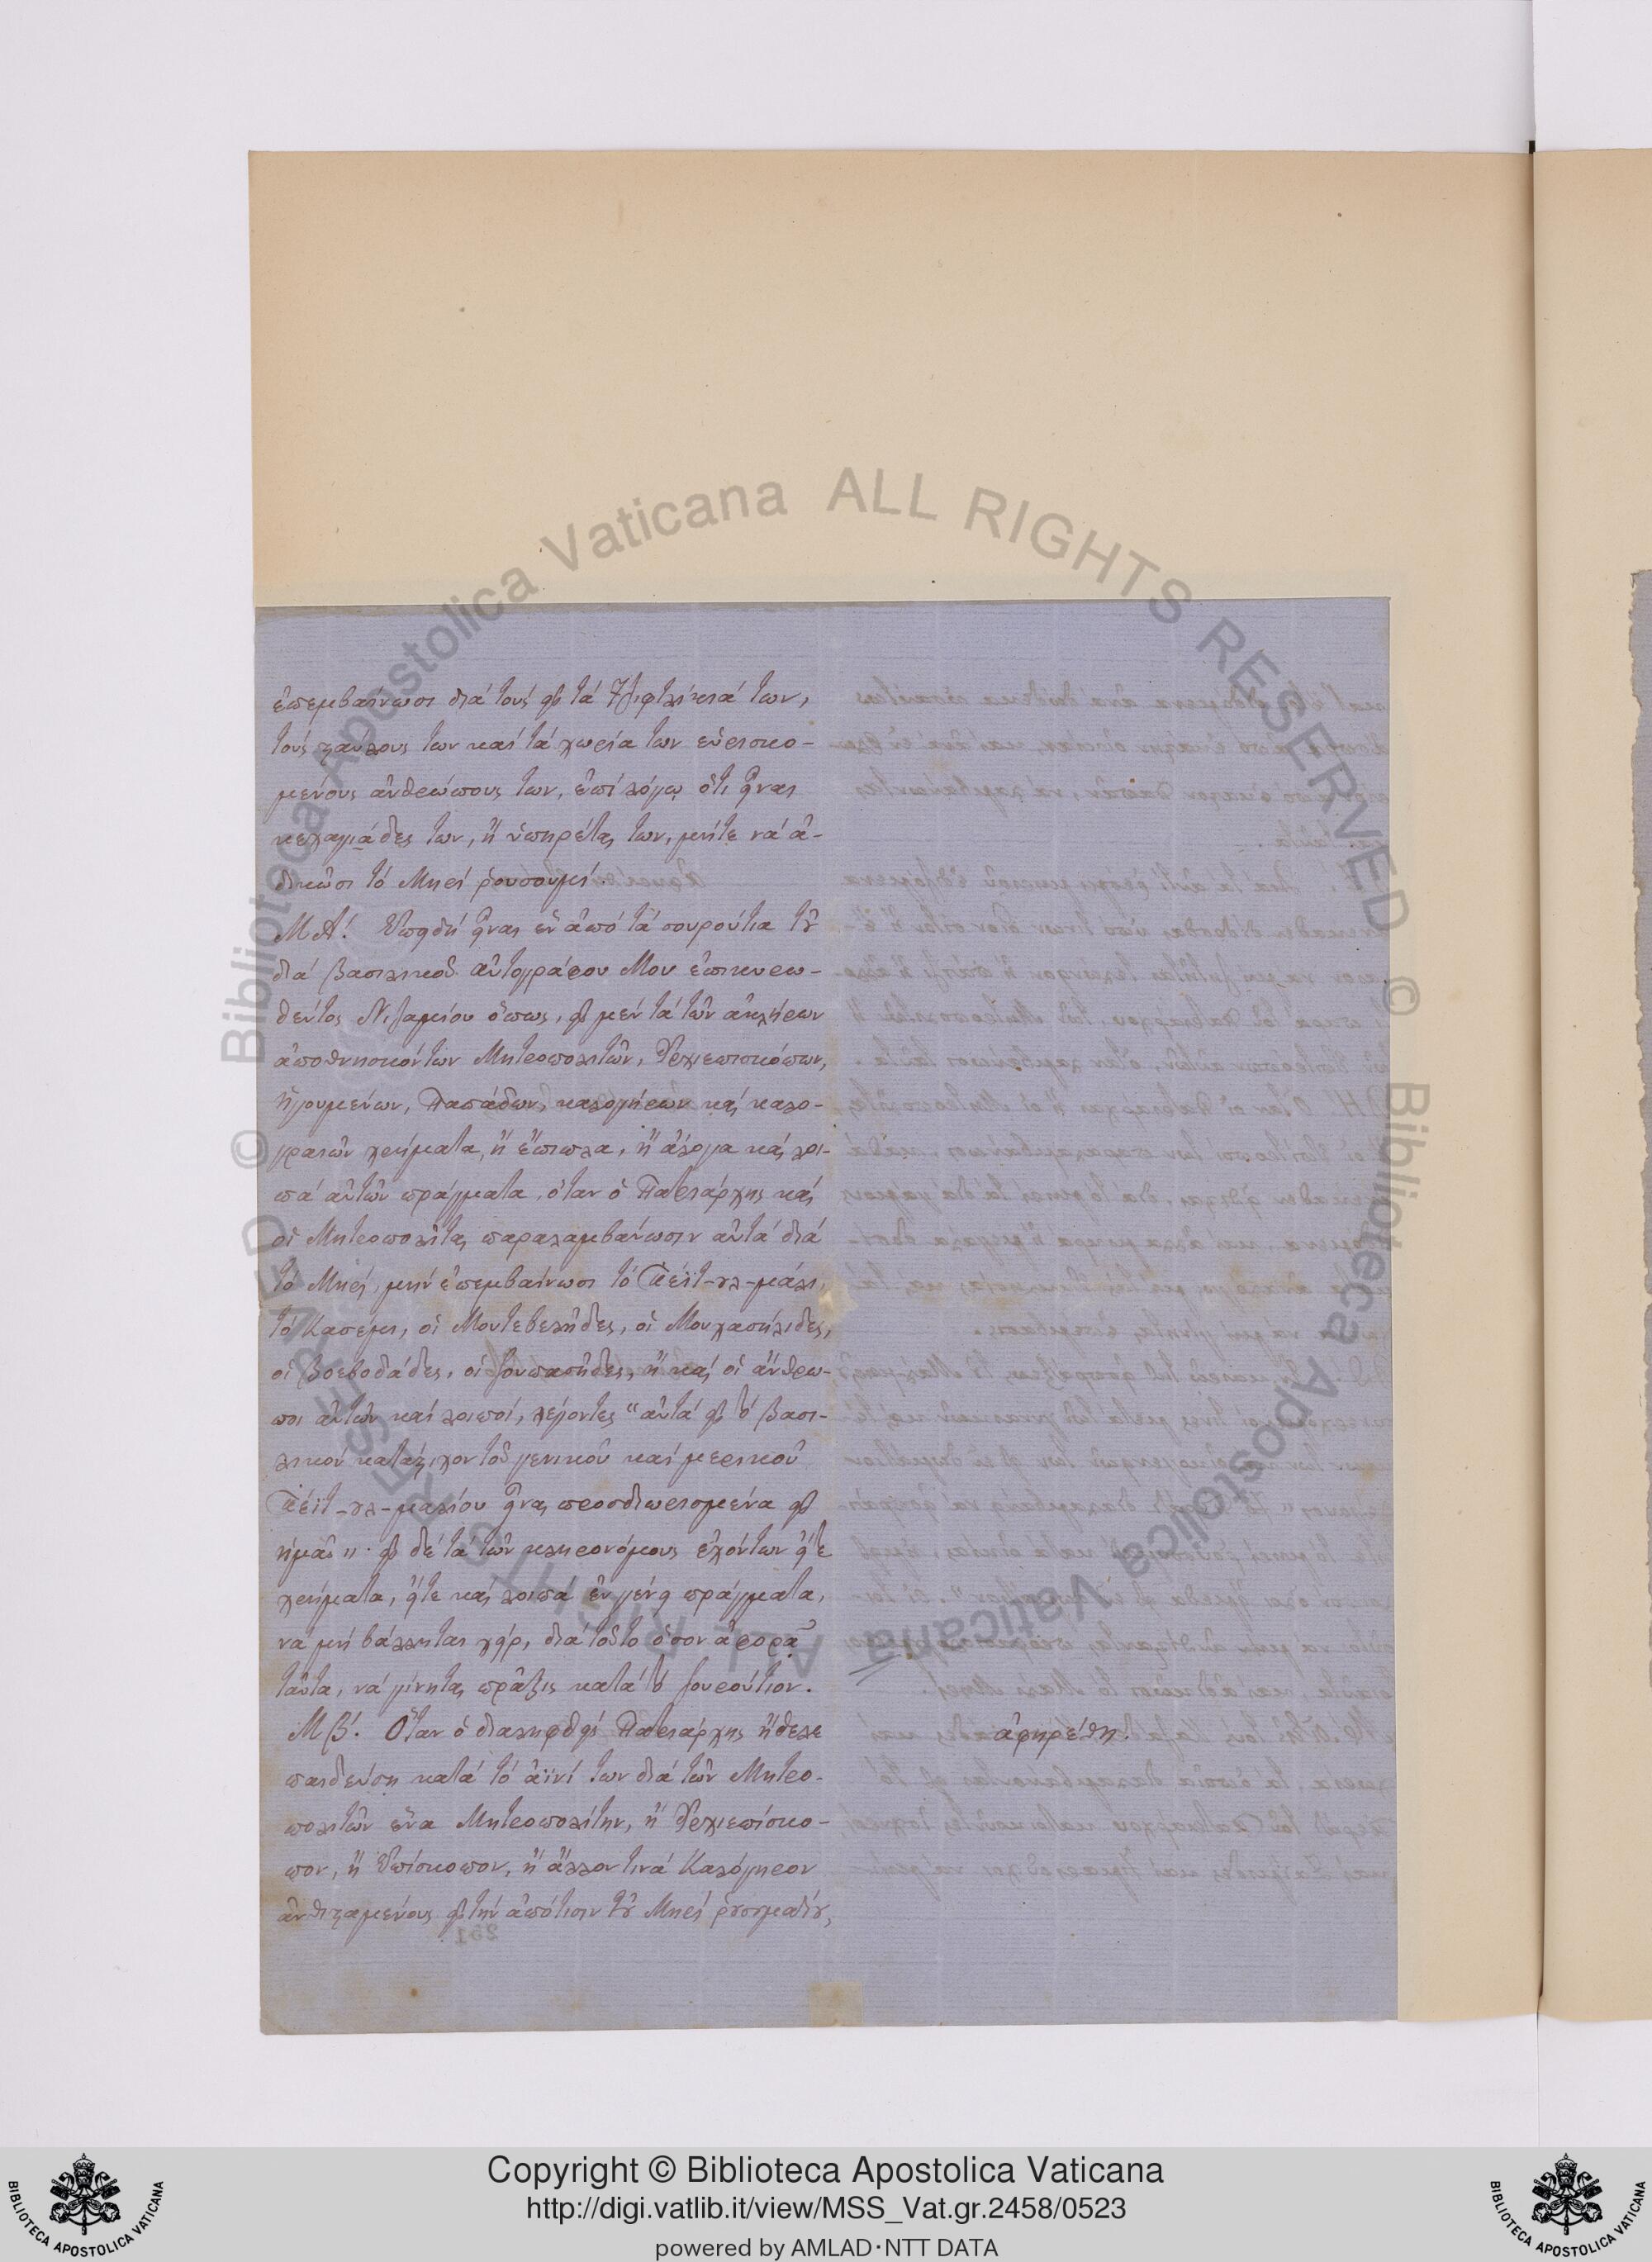 ἐπεμβαίνωσι διὰ τοὺς εἰς τὰ Τζιφτλίκιά των,
τοὺς σταύλους των καὶ τὰ χωρία των εὑρισκο-
μένους ἀνθρώπους των, ἐπὶ λόγῳ ὅτι εἶναι
κεχαγιάδες των, ἢ ὑπηρέται των, μήτε νὰ ἀ-
δικῶσι τὸ Μηρὶ ῥουσουμί.
ΜΑ΄. Ἐπειδὴ εἶναι ἓν ἀπὸ τὰ σουρούτια τοῦ
διὰ βασιλικοῦ αὐτογράφου Μου ἐπικυρω-
θέντος Νιζαμίου ὅπως, εἰς μὲν τὰ τῶν ἀκλήρων
ἀποθνησκόντων Μητροπολιτῶν, Ἀρχιεπισκόπων,
Ἡγουμένων, Παπάδων, καλογήρων καὶ καλο-
γραιῶν χρήματα, ἢ ἔπιπλα, ἢ ἄλογα καὶ λοι-
πὰ αὐτῶν πράγματα, ὅταν ὁ Πατριάρχης καὶ
οἱ Μητροπολῖται παραλαμβάνωσιν αὐτὰ διὰ
τὸ Μηρί, μὴν ἐπεμβαίνωσι τὸ Πέϊτ-ουλ-μάλι,
τὸ Κασέμι, οἱ Μουτεβελῆδες, οἱ Μουχασήλιδες,
οἱ βοεβοδάδες, οἱ σουπασῆδες, ἢ καὶ οἱ ἄνθρω-
ποι αὐτῶν καὶ λοιποί, λέγοντες "αὐτὰ εἰς τὸ βασι-
λικὸν κατάστιχον τοῦ γενικοῦ καὶ μερικοῦ
Πέϊτ-ουλ-μαλίου εἶναι προσδιωρισμένα εἰς
ἡμᾶς"· εἰς δὲ τὰ τῶν κληρονόμους ἐχόντων εἴτε
χρήματα, εἴτε καὶ λοιπὰ ἐν γένει πράγματα,
νὰ μὴ βάλληται χείρ, διὰ τοῦτο ὅσον ἀφορᾷ
ταῦτα, νὰ γίνηται πρᾶξις κατὰ τὸ σουρούτιον.
Μβ΄. Ὅταν ὁ διαληφθεὶς Πατριάρχης ἤθελε
παιδεύσῃ κατὰ τὸ ἀϊνί των διὰ τῶν Μητρο-
πολιτῶν ἕνα Μητροπολίτην, ἢ Ἀρχιεπίσκο-
πον, ἢ Ἐπίσκοπον, ἢ ἄλλον τινὰ Καλόγηρον
ἀνθισταμένους εἰς τὴν ἀπότισιν τοῦ Μηρὶ ῥουσουματίου,
ἀφῃρέθη.
Copyright © Biblioteca Apostolica Vaticana
http://digi.vatlib.it/view/MSS_Vat.gr.2458/0523
powered by AMLAD·NTT DATA
BIBLIOTECA APOSTOLICA VATICANA
BIBLIOTECA APOSTOLICA VATICANA
© Biblioteca Apostolica Vaticana ALL RIGHTS RESERVED
© Biblioteca Apostolica Vaticana ALL RIGHTS RESERVED